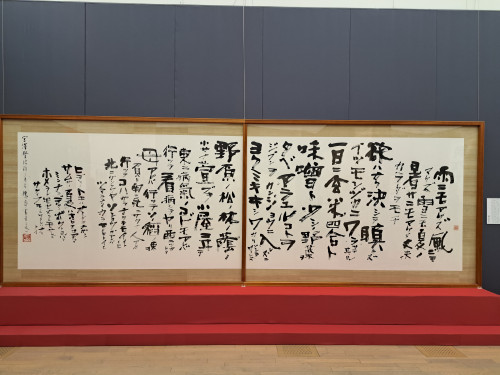 雨ニモマケズ風ニモ
マケズ雪ニモ夏ノ
暑サニモマケヌ丈夫
ナカラダヲモチ
欲ハナク決シテ瞋ラズ
イツモシヅカニワラッテヰル
一日ニ玄米四合ト
味噌ト少シノ野菜ヲ
タベアラユルコトヲ
ジブンヲカンジョウニ入レズニ
ヨクミキキシワカリ
野原ノ松林ノ蔭ノ
小サナ萱ブキノ小屋ニヰテ
東ニ病気ノコドモアレバ
行ッテ看病シテヤリ西ニ
母アレバ行ッテソノ稲ノ束ヲ
負ヒ南ニ死ニサウナ人アレバ
行ッテコハガラナクテモイイトイヒ
北ニケンクヮヤソショウガアレバ
ヒデリノトキハナミダヲナガシ
サムサノナツハオロオロアルキ
ミンナニデクノボートヨバレ
ホメラレモセズクニモサレズ
サウイフモノニ
宮澤賢治